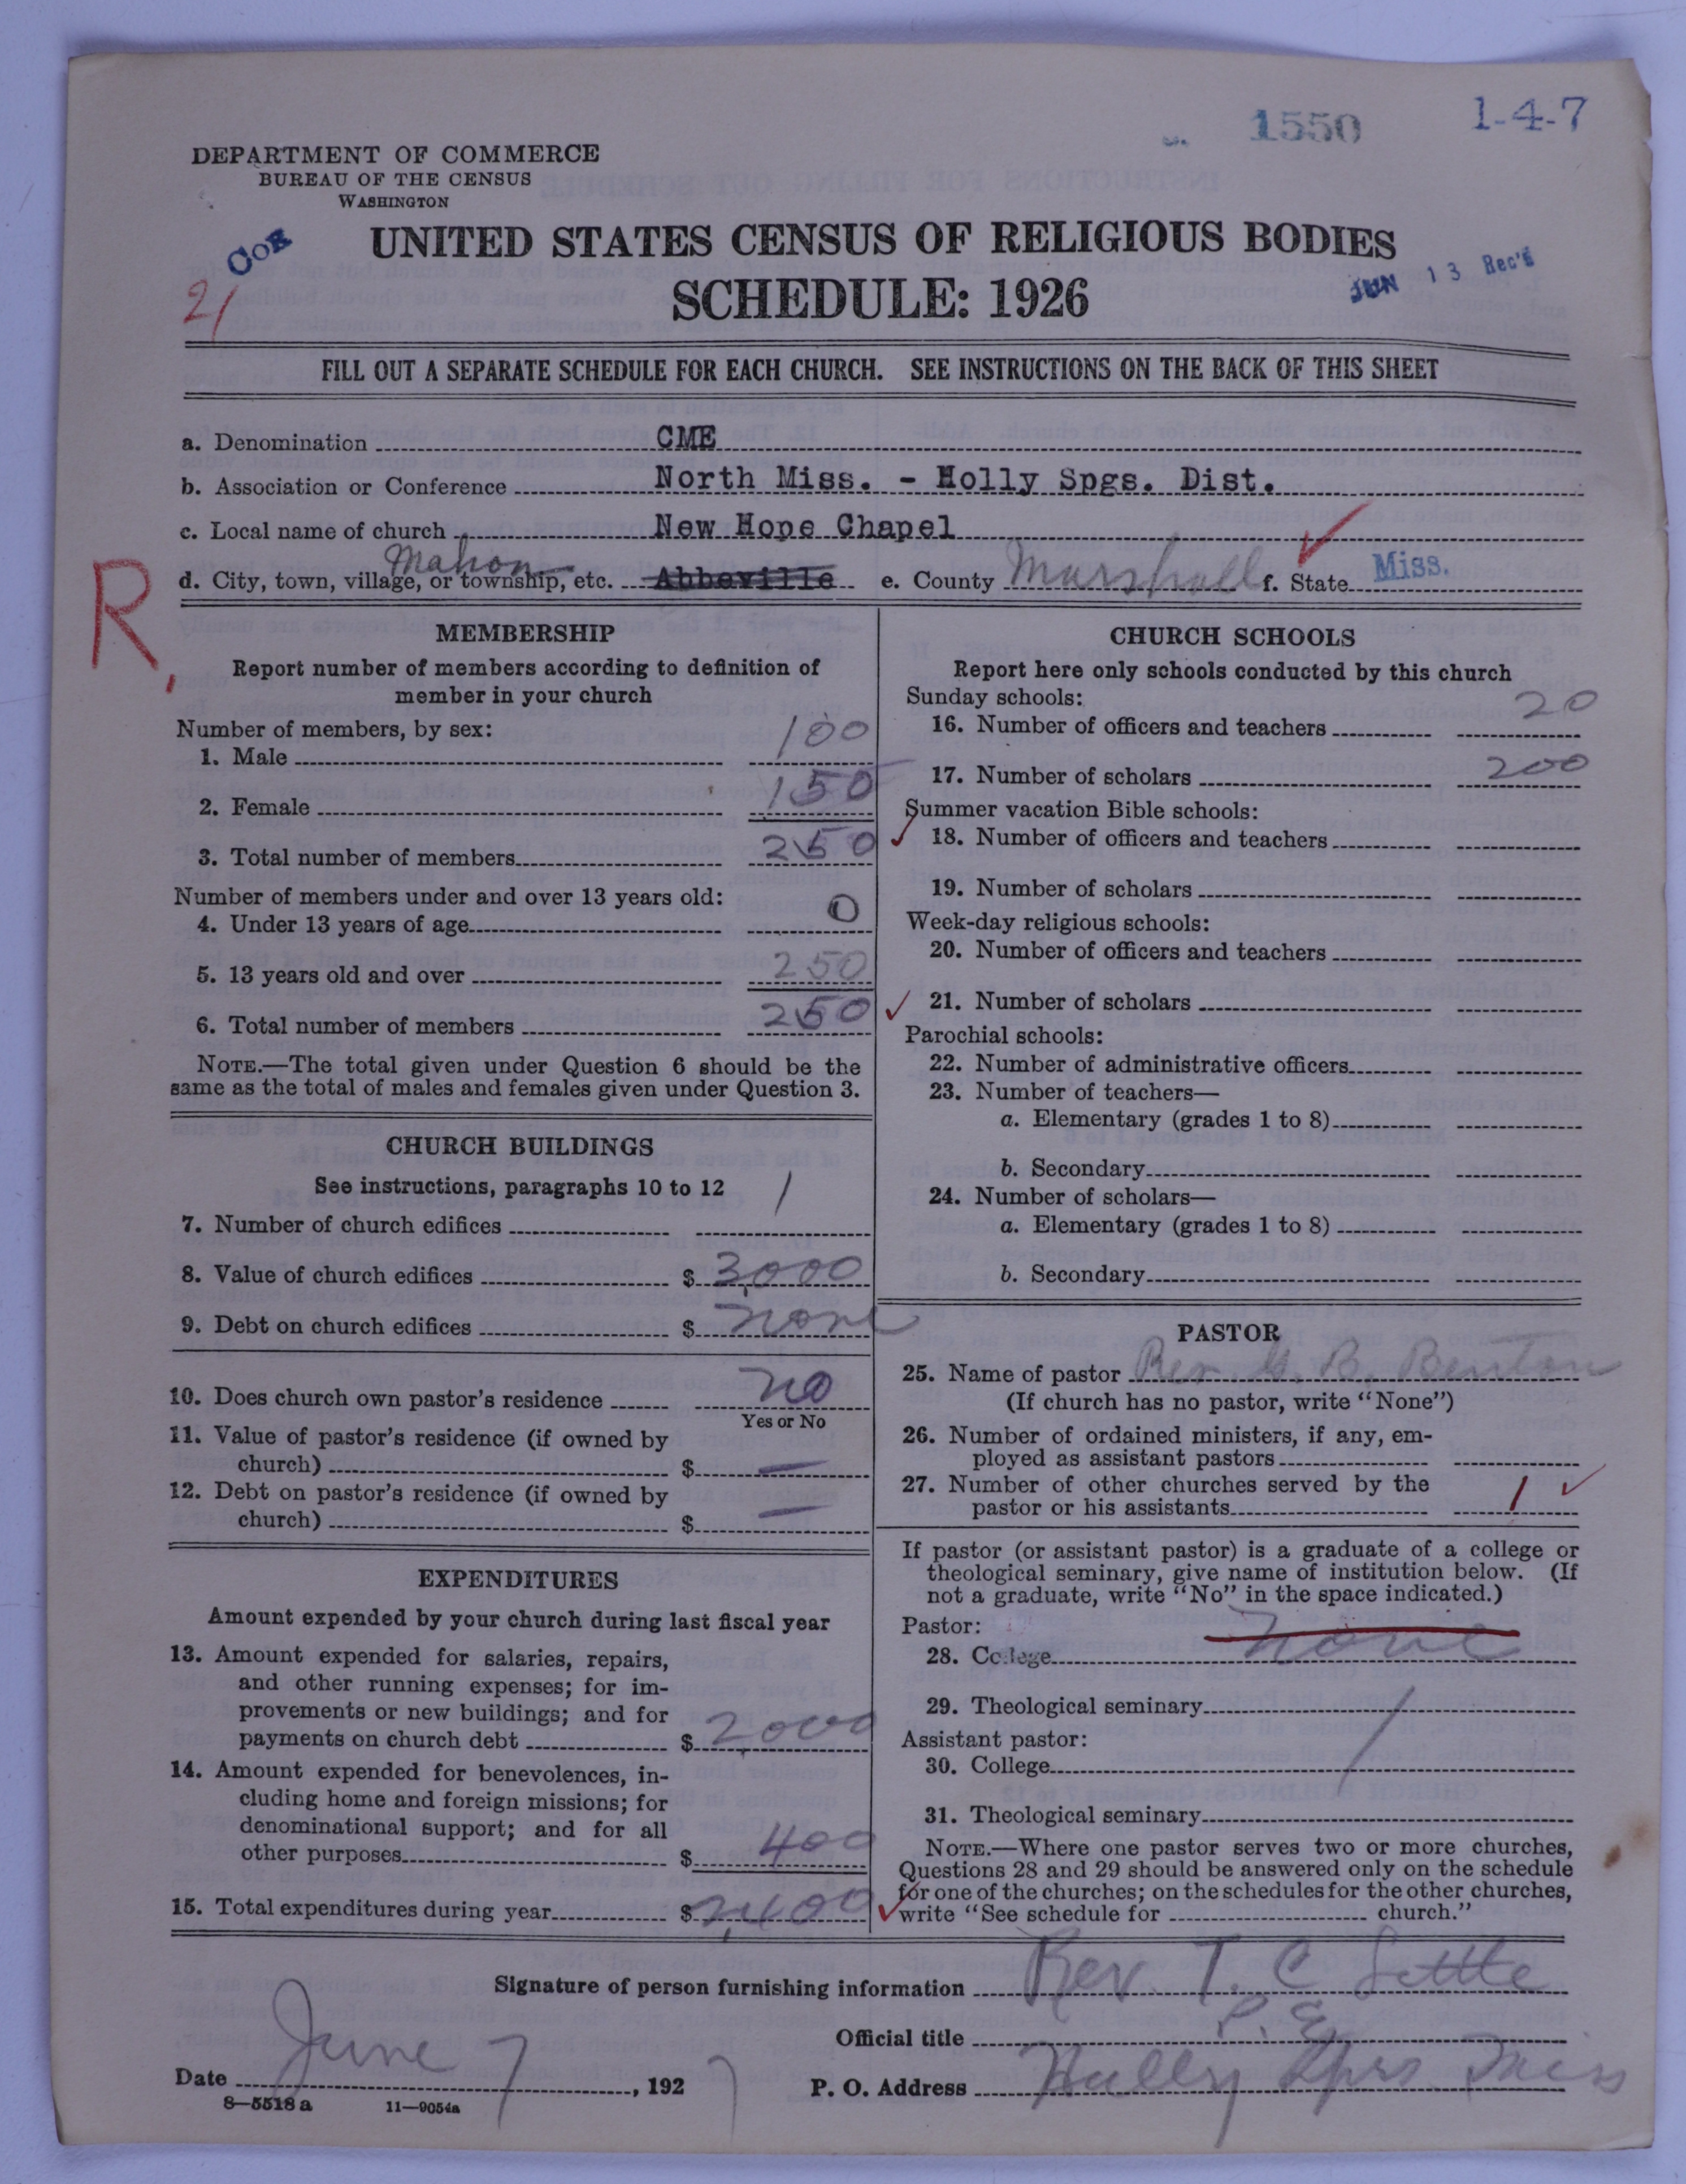 1550 1-4-7
DEPARTMENT OF COMMERCE
BUREAU OF THE CENSUS
WASHINGTON
COE
21
UNITED STATES CENSUS OF RELIGIOUS BODIES
SCHEDULE: 1926
JUN 13 Rec'd
FILL OUT A SEPARATE SCHEDULE FOR EACH CHURCH. SEE INSTRUCTIONS ON THE BACK OF THIS SHEET
a. Denomination CME
b. Association or Conference North Miss. - Holly Spgs. Dist.
c. Local name of church New Hope Chapel
d. City, town, village, or township, etc. Mahon Abbeville e. County Marshall f. State Miss.
R.
MEMBERSHIP
Report number of members according to definition of
member in your church
Number of members, by sex:
1. Male 100
2. Female 150
3. Total number of members 250
Number of members under and over 13 years old:
4. Under 13 years of age 0
5. 13 years old and over 250
6. Total number of members 250
NOTE.—The total given under Question 6 should be the
same as the total of males and females given under Question 3.
CHURCH BUILDINGS
See instructions, paragraphs 10 to 12
7. Number of church edifices 1
8. Value of church edifices $ 3,000
9. Debt on church edifices $ none
10. Does church own pastor's residence no
Yes or No
11. Value of pastor's residence (if owned by
church) $ —
12. Debt on pastor's residence (if owned by
church) $ —
EXPENDITURES
Amount expended by your church during last fiscal year
13. Amount expended for salaries, repairs,
and other running expenses; for im-
provements or new buildings; and for
payments on church debt $ 2,000
14. Amount expended for benevolences, in-
cluding home and foreign missions; for
denominational support; and for all
other purposes $ 400
15. Total expenditures during year $ 2,400
CHURCH SCHOOLS
Report here only schools conducted by this church
Sunday schools:
16. Number of officers and teachers 20
17. Number of scholars 200
Summer vacation Bible schools:
18. Number of officers and teachers
19. Number of scholars
Week-day religious schools:
20. Number of officers and teachers
21. Number of scholars
Parochial schools:
22. Number of administrative officers
23. Number of teachers—
a. Elementary (grades 1 to 8)
b. Secondary
24. Number of scholars—
a. Elementary (grades 1 to 8)
b. Secondary
PASTOR
25. Name of pastor Rev. G. B. Benton
(If church has no pastor, write "None")
26. Number of ordained ministers, if any, em-
ployed as assistant pastors
27. Number of other churches served by the
pastor or his assistants 1
If pastor (or assistant pastor) is a graduate of a college or
theological seminary, give name of institution below. (If
not a graduate, write "No" in the space indicated.)
Pastor:
28. College none
29. Theological seminary
Assistant pastor:
30. College
31. Theological seminary
NOTE.—Where one pastor serves two or more churches,
Questions 28 and 29 should be answered only on the schedule
for one of the churches; on the schedules for the other churches,
write "See schedule for church."
Signature of person furnishing information Rev. T. C. Settle
Official title P. E.
Date June 7, 1927 P. O. Address Holly Spgs Miss
8—5518 a 11—9054a